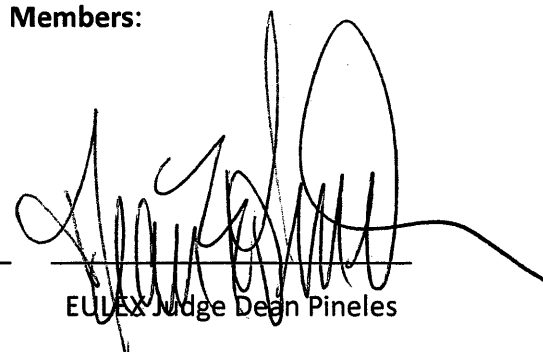 Members:
EULEX Judge Dean Pineles